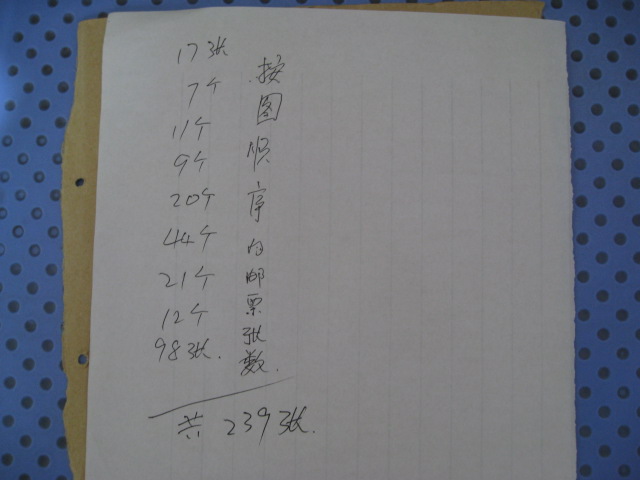 17张
7个
11个
9个
20个
44个
21个
12个
98张.
按图顺序的邮票张数.
共 239张.